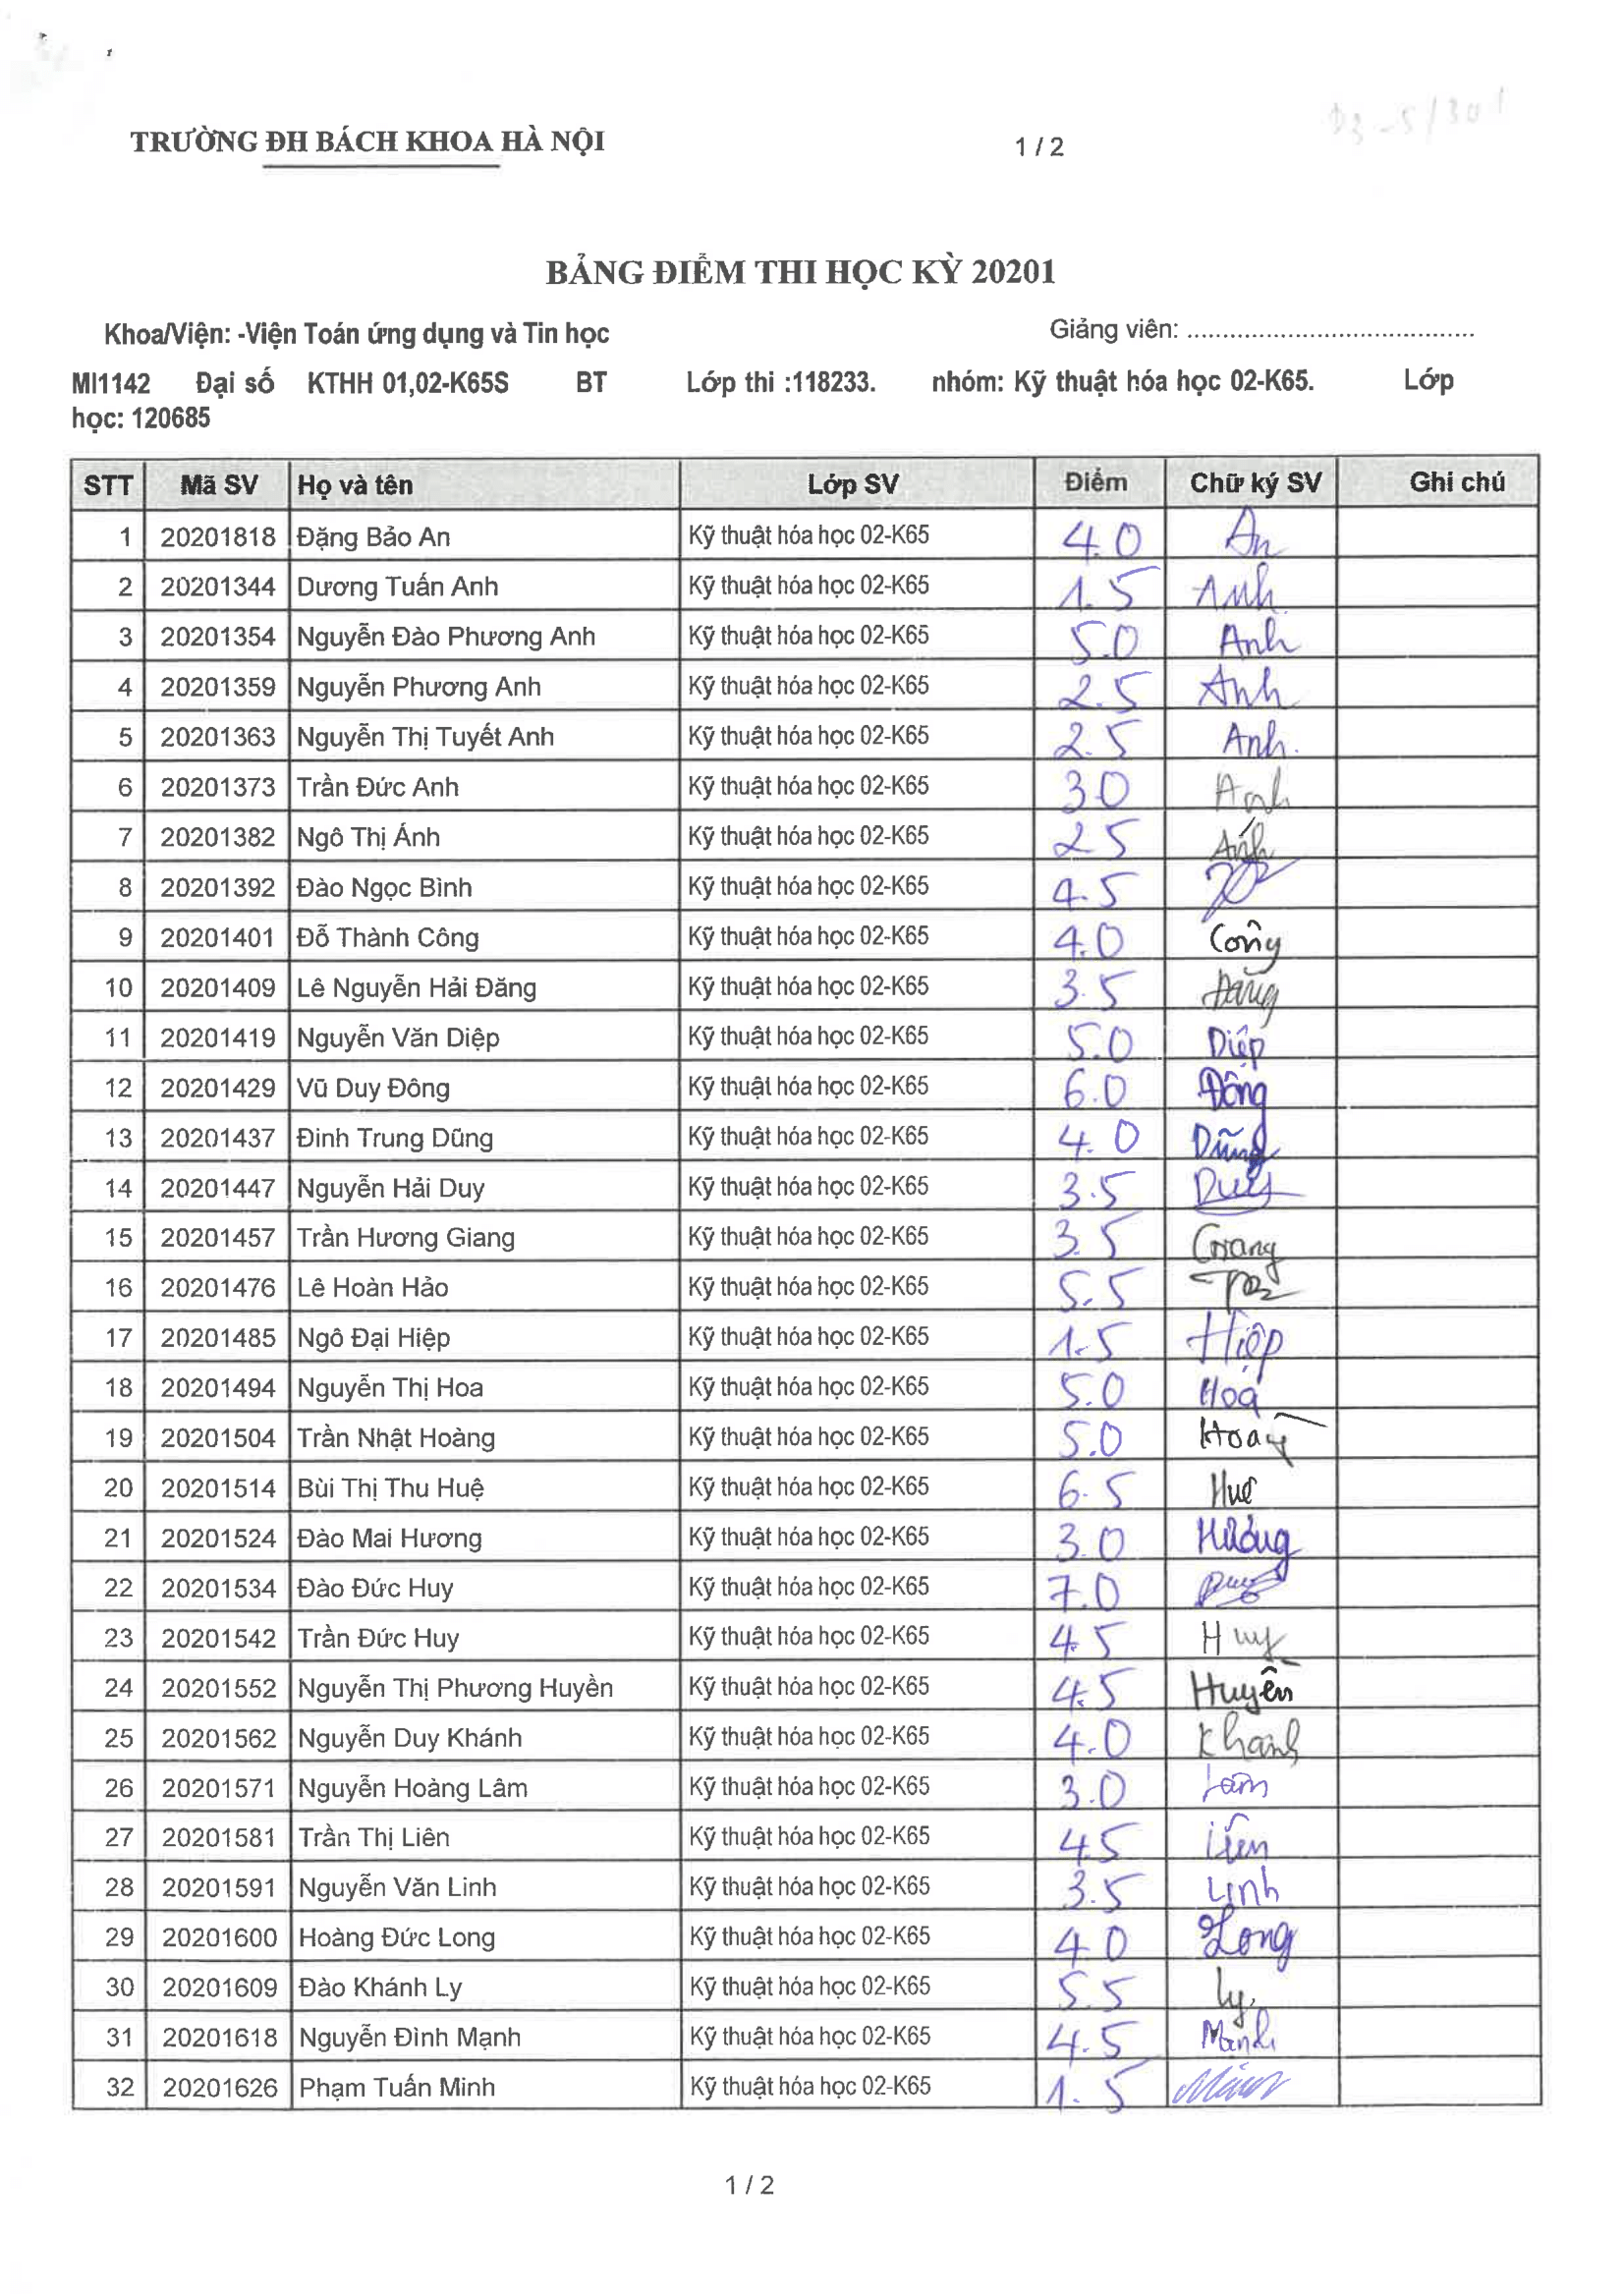 TRƯỜNG ĐH BÁCH KHOA HÀ NỘI 1 / 2
BẢNG ĐIỂM THI HỌC KỲ 20201
Khoa/Viện: -Viện Toán ứng dụng và Tin học Giảng viên: ........................................
MI1142 Đại số KTHH 01,02-K65S BT Lớp thi :118233. nhóm: Kỹ thuật hóa học 02-K65. Lớp
học: 120685
STT Mã SV Họ và tên Lớp SV Điểm Chữ ký SV Ghi chú
1 20201818 Đặng Bảo An Kỹ thuật hóa học 02-K65 4.0 An
2 20201344 Dương Tuấn Anh Kỹ thuật hóa học 02-K65 1.5 Anh
3 20201354 Nguyễn Đào Phương Anh Kỹ thuật hóa học 02-K65 5.0 Anh
4 20201359 Nguyễn Phương Anh Kỹ thuật hóa học 02-K65 2.5 Anh
5 20201363 Nguyễn Thị Tuyết Anh Kỹ thuật hóa học 02-K65 2.5 Anh.
6 20201373 Trần Đức Anh Kỹ thuật hóa học 02-K65 30 Anh
7 20201382 Ngô Thị Ánh Kỹ thuật hóa học 02-K65 25 Ánh
8 20201392 Đào Ngọc Bình Kỹ thuật hóa học 02-K65 4.5
9 20201401 Đỗ Thành Công Kỹ thuật hóa học 02-K65 4.0 Công
10 20201409 Lê Nguyễn Hải Đăng Kỹ thuật hóa học 02-K65 3.5 Đăng
11 20201419 Nguyễn Văn Diệp Kỹ thuật hóa học 02-K65 5.0 Diệp
12 20201429 Vũ Duy Đông Kỹ thuật hóa học 02-K65 6.0 Đông
13 20201437 Đinh Trung Dũng Kỹ thuật hóa học 02-K65 4.0 Dũng
14 20201447 Nguyễn Hải Duy Kỹ thuật hóa học 02-K65 3.5 Duy
15 20201457 Trần Hương Giang Kỹ thuật hóa học 02-K65 3.5 Giang
16 20201476 Lê Hoàn Hảo Kỹ thuật hóa học 02-K65 5.5
17 20201485 Ngô Đại Hiệp Kỹ thuật hóa học 02-K65 1.5 Hiệp
18 20201494 Nguyễn Thị Hoa Kỹ thuật hóa học 02-K65 5.0 Hoa
19 20201504 Trần Nhật Hoàng Kỹ thuật hóa học 02-K65 5.0 Hoàng
20 20201514 Bùi Thị Thu Huệ Kỹ thuật hóa học 02-K65 6.5 Huệ
21 20201524 Đào Mai Hương Kỹ thuật hóa học 02-K65 3.0 Hương
22 20201534 Đào Đức Huy Kỹ thuật hóa học 02-K65 7.0
23 20201542 Trần Đức Huy Kỹ thuật hóa học 02-K65 4.5 Huy
24 20201552 Nguyễn Thị Phương Huyền Kỹ thuật hóa học 02-K65 4.5 Huyền
25 20201562 Nguyễn Duy Khánh Kỹ thuật hóa học 02-K65 4.0 Khánh
26 20201571 Nguyễn Hoàng Lâm Kỹ thuật hóa học 02-K65 3.0 Lâm
27 20201581 Trần Thị Liên Kỹ thuật hóa học 02-K65 4.5 Liên
28 20201591 Nguyễn Văn Linh Kỹ thuật hóa học 02-K65 3.5 Linh
29 20201600 Hoàng Đức Long Kỹ thuật hóa học 02-K65 4.0 Long
30 20201609 Đào Khánh Ly Kỹ thuật hóa học 02-K65 5.5 Ly
31 20201618 Nguyễn Đình Mạnh Kỹ thuật hóa học 02-K65 4.5 Mạnh
32 20201626 Phạm Tuấn Minh Kỹ thuật hóa học 02-K65 1.5
1 / 2